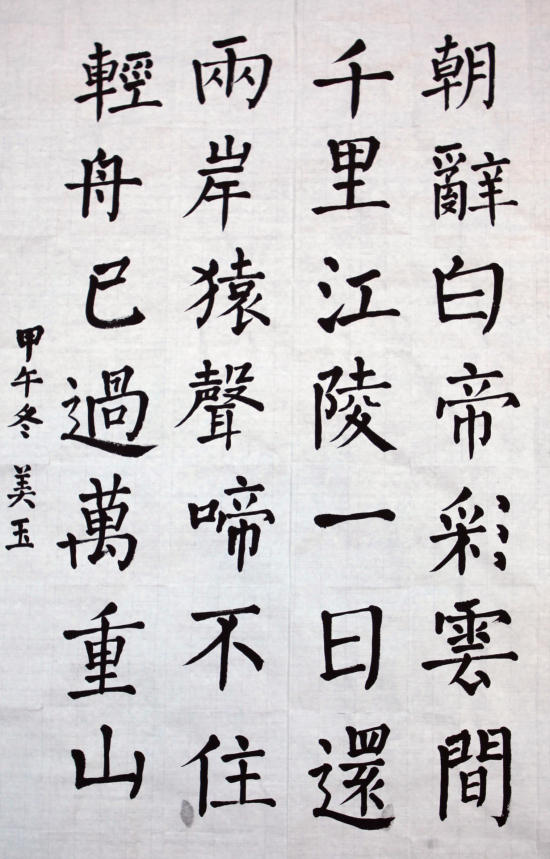 朝辭白帝彩雲間
千里江陵一日還
兩岸猿聲啼不住
輕舟已過萬重山
甲午冬 美玉